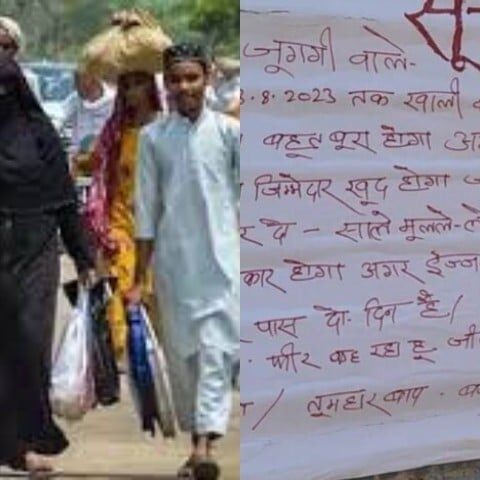 जूगगी वाले-
.8.2023 तक खाली
बहूत बूरा होगा
जिमेदार खूद होगा
र दे - साले मूलले-
कार होगा अगर ईज्ज
पास दो. दिन है /
फीर कह रहा हू
/ तूमहार बाप -